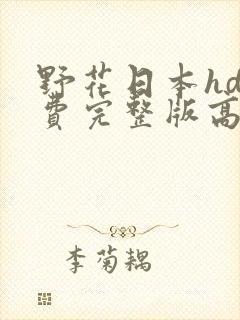 野花日本hd
费完整版高
李菊耦